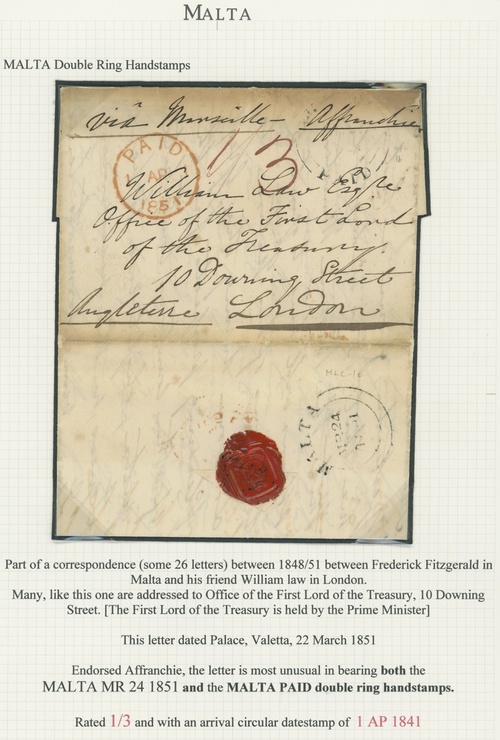 MALTA
MALTA Double Ring Handstamps
viâ Marseille - Affranchie
PAID
1 AP
1851
1/3
PAID
William Law Esqre
Office of the First Lord
of the Treasury.
10 Downing Street
Angleterre London
MLC-16
MALTA
MR 24
Part of a correspondence (some 26 letters) between 1848/51 between Frederick Fitzgerald in
Malta and his friend William law in London.
Many, like this one are addressed to Office of the First Lord of the Treasury, 10 Downing
Street. [The First Lord of the Treasury is held by the Prime Minister]
This letter dated Palace, Valetta, 22 March 1851
Endorsed Affranchie, the letter is most unusual in bearing both the
MALTA MR 24 1851 and the MALTA PAID double ring handstamps.
Rated 1/3 and with an arrival circular datestamp of 1 AP 1841